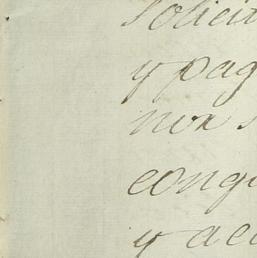 solicit
y pag
nox s
congu
y ace